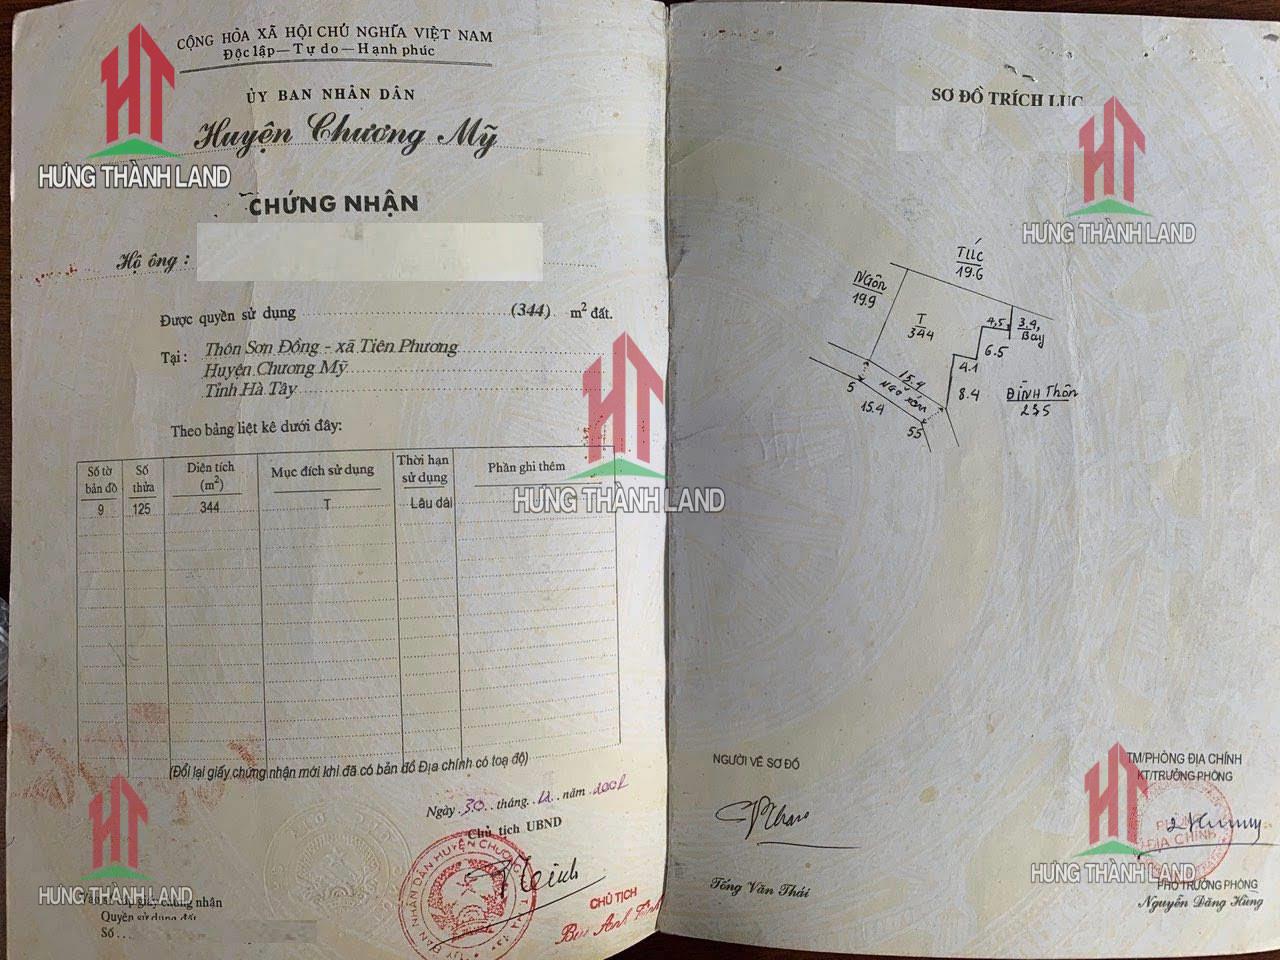 CỘNG HÒA XÃ HỘI CHỦ NGHĨA VIỆT NAM
Độc lập - Tự do - Hạnh phúc
ỦY BAN NHÂN DÂN
Huyện Chương Mỹ
CHỨNG NHẬN
Hộ ông :
Được quyền sử dụng (344) m² đất.
Tại: Thôn Sơn Đồng - xã Tiên Phương
Huyện Chương Mỹ
Tỉnh Hà Tây
Theo bảng liệt kê dưới đây:
Số tờ bản đồ Số thửa Diện tích (m²) Mục đích sử dụng Thời hạn sử dụng Phần ghi thêm
9 125 344 T Lâu dài
(Đổi lại giấy chứng nhận mới khi đã có bản đồ Địa chính có toạ độ)
Ngày 30 tháng 12 năm 2001
Chủ tịch UBND
CHỦ TỊCH
giấy chứng nhận
Quyền sử dụng đất
Số
SƠ ĐỒ TRÍCH LỤC
19.6
NGÔN
19.9
T
344
4,5
3.9
Bay
6.5
4.1
8.4
ĐÌNH Thôn
235
15.4
NGÕ XÓM
5
15.4
55
NGƯỜI VẼ SƠ ĐỒ
Tống Văn Thái
TM/PHÒNG ĐỊA CHÍNH
KT/TRƯỞNG PHÒNG
ĐỊA CHÍNH
PHÓ TRƯỞNG PHÒNG
Nguyễn Đăng Hùng
HƯNG THÀNH LAND
HƯNG THÀNH LAND
HƯNG THÀNH LAND
HƯNG THÀNH LAND
HƯNG THÀNH LAND